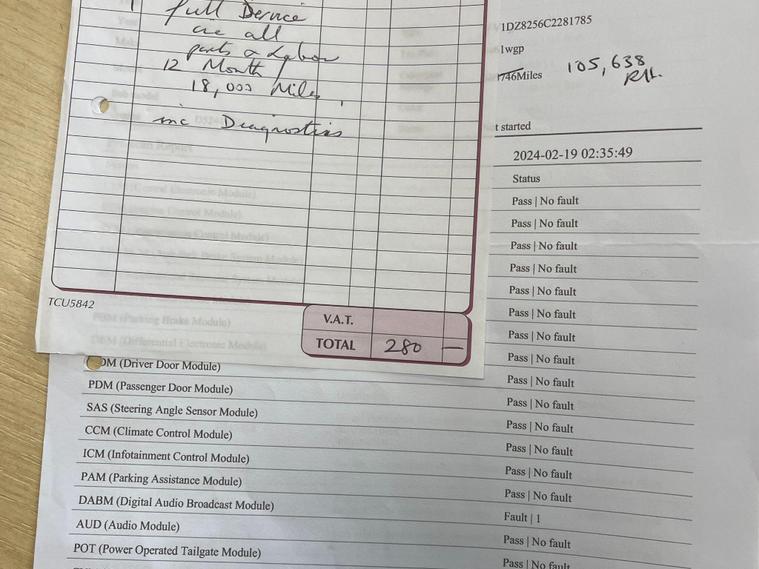 1 full Service
inc all
parts & Labour
12 Month
18,000 Miles,
inc Diagnostics
TCU5842
V.A.T.
TOTAL 280 —
1DZ8256C2281785
1wgp
Miles 105,638
t started
2024-02-19 02:35:49
Status
Pass | No fault
Pass | No fault
Pass | No fault
Pass | No fault
Pass | No fault
Pass | No fault
Pass | No fault
DM (Driver Door Module) Pass | No fault
PDM (Passenger Door Module) Pass | No fault
SAS (Steering Angle Sensor Module) Pass | No fault
CCM (Climate Control Module) Pass | No fault
ICM (Infotainment Control Module) Pass | No fault
PAM (Parking Assistance Module) Pass | No fault
DABM (Digital Audio Broadcast Module) Pass | No fault
AUD (Audio Module) Fault | 1
POT (Power Operated Tailgate Module) Pass | No fault
Pass | No fault